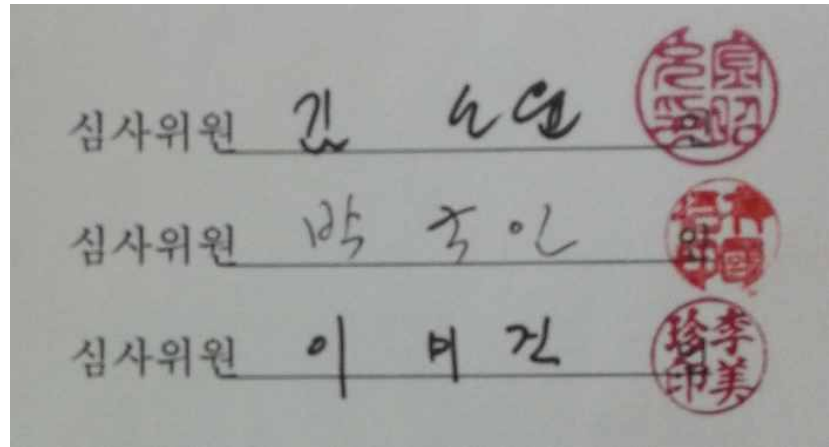 심사위원 김 인
심사위원 박 국 인 인
심사위원 이 미 진 인 李美珍印